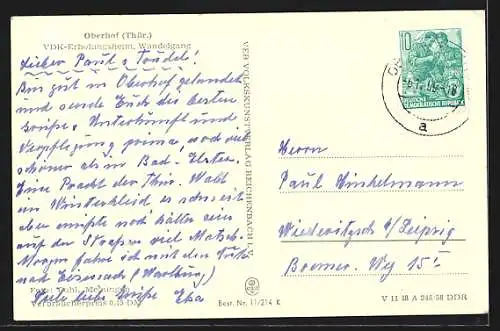 Oberhof (Thür.)
VDK-Erholungsheim, Wandelgang
Lieber Paul u. Traudel!
Bin gut in Oberhof gelandet
und sende Euch die besten
Grüße. Unterkunft und
Verpflegung prima, noch viel
schöner als in Bad-Elster.
Eine Pracht der Thür. Wald
im Winterkleid es schneit
aber müßte noch kälter sein
auf den Straßen viel Matsch.
Morgen fahre ich mit den
nach Eisenach (Wartburg)
Viele liebe Grüße
Foto: Dohl, Meiningen
Verbraucherpreis 0,15 DM
VEB VOLKSKUNSTVERLAG REICHENBACH I. V.
Best. Nr. 11/214 K
10
DEUTSCHE DEMOKRATISCHE REPUBLIK
a
Herrn
Paul Winkelmann
Wiederitzsch b/Leipzig
Bremer. Weg 15
V 11 28 A 246/58 DDR